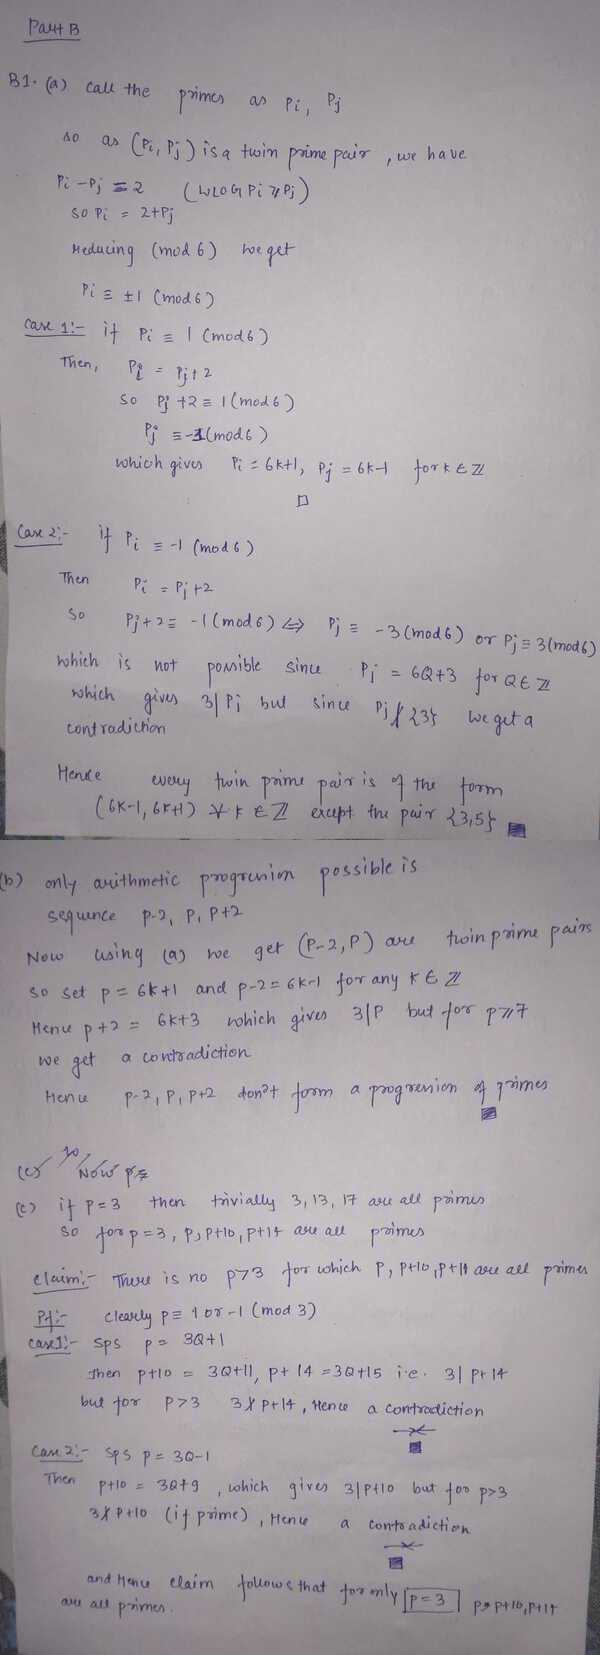 Part B
B1. (a) call the primes as Pi, Pj
so as (Pi, Pj) is a twin prime pair, we have
Pi - Pj = 2 (WLOG Pi ≥ Pj)
so Pi = 2+Pj
reducing (mod 6) we get
Pi ≡ ±1 (mod 6)
Case 1:- if Pi ≡ 1 (mod 6)
Then, Pi = Pj+2
so Pj +2 ≡ 1 (mod 6)
Pj ≡ -1 (mod 6)
which gives Pi = 6k+1, Pj = 6k-1 for k ∈ ℤ
□
Case 2:- if Pi ≡ -1 (mod 6)
Then Pi = Pj+2
so Pj+2 ≡ -1 (mod 6) ⇔ Pj ≡ -3 (mod 6) or Pj ≡ 3 (mod 6)
which is not possible since Pj = 6Q+3 for Q ∈ ℤ
which gives 3|Pj but since Pj ∉ {3} we get a
contradiction
Hence every twin prime pair is of the form
(6k-1, 6k+1) ∀ k ∈ ℤ except the pair {3,5} ■
(b) only arithmetic progression possible is
sequence p-2, p, p+2
Now using (a) we get (p-2, p) are twin prime pairs
so set p = 6k+1 and p-2 = 6k-1 for any k ∈ ℤ
Hence p+2 = 6k+3 which gives 3|P but for p≥7
we get a contradiction
Hence p-2, p, p+2 don't form a progression of primes
■
(c) so Now p=
(c) if p=3 then trivially 3, 13, 17 are all primes
so for p=3, p, p+10, p+14 are all primes
claim:- There is no p>3 for which p, p+10, p+14 are all primes
Pf:- clearly p ≡ 1 or -1 (mod 3)
case 1:- sps p = 3Q+1
Then p+10 = 3Q+11, p+14 = 3Q+15 i.e. 3| p+14
but for p>3 3∤p+14, Hence a contradiction
■
Case 2:- sps p = 3Q-1
Then p+10 = 3Q+9, which gives 3|p+10 but for p>3
3∤p+10 (if prime), Hence a contradiction
■
and Hence claim follows that for only p=3 p, p+10, p+14
are all primes.